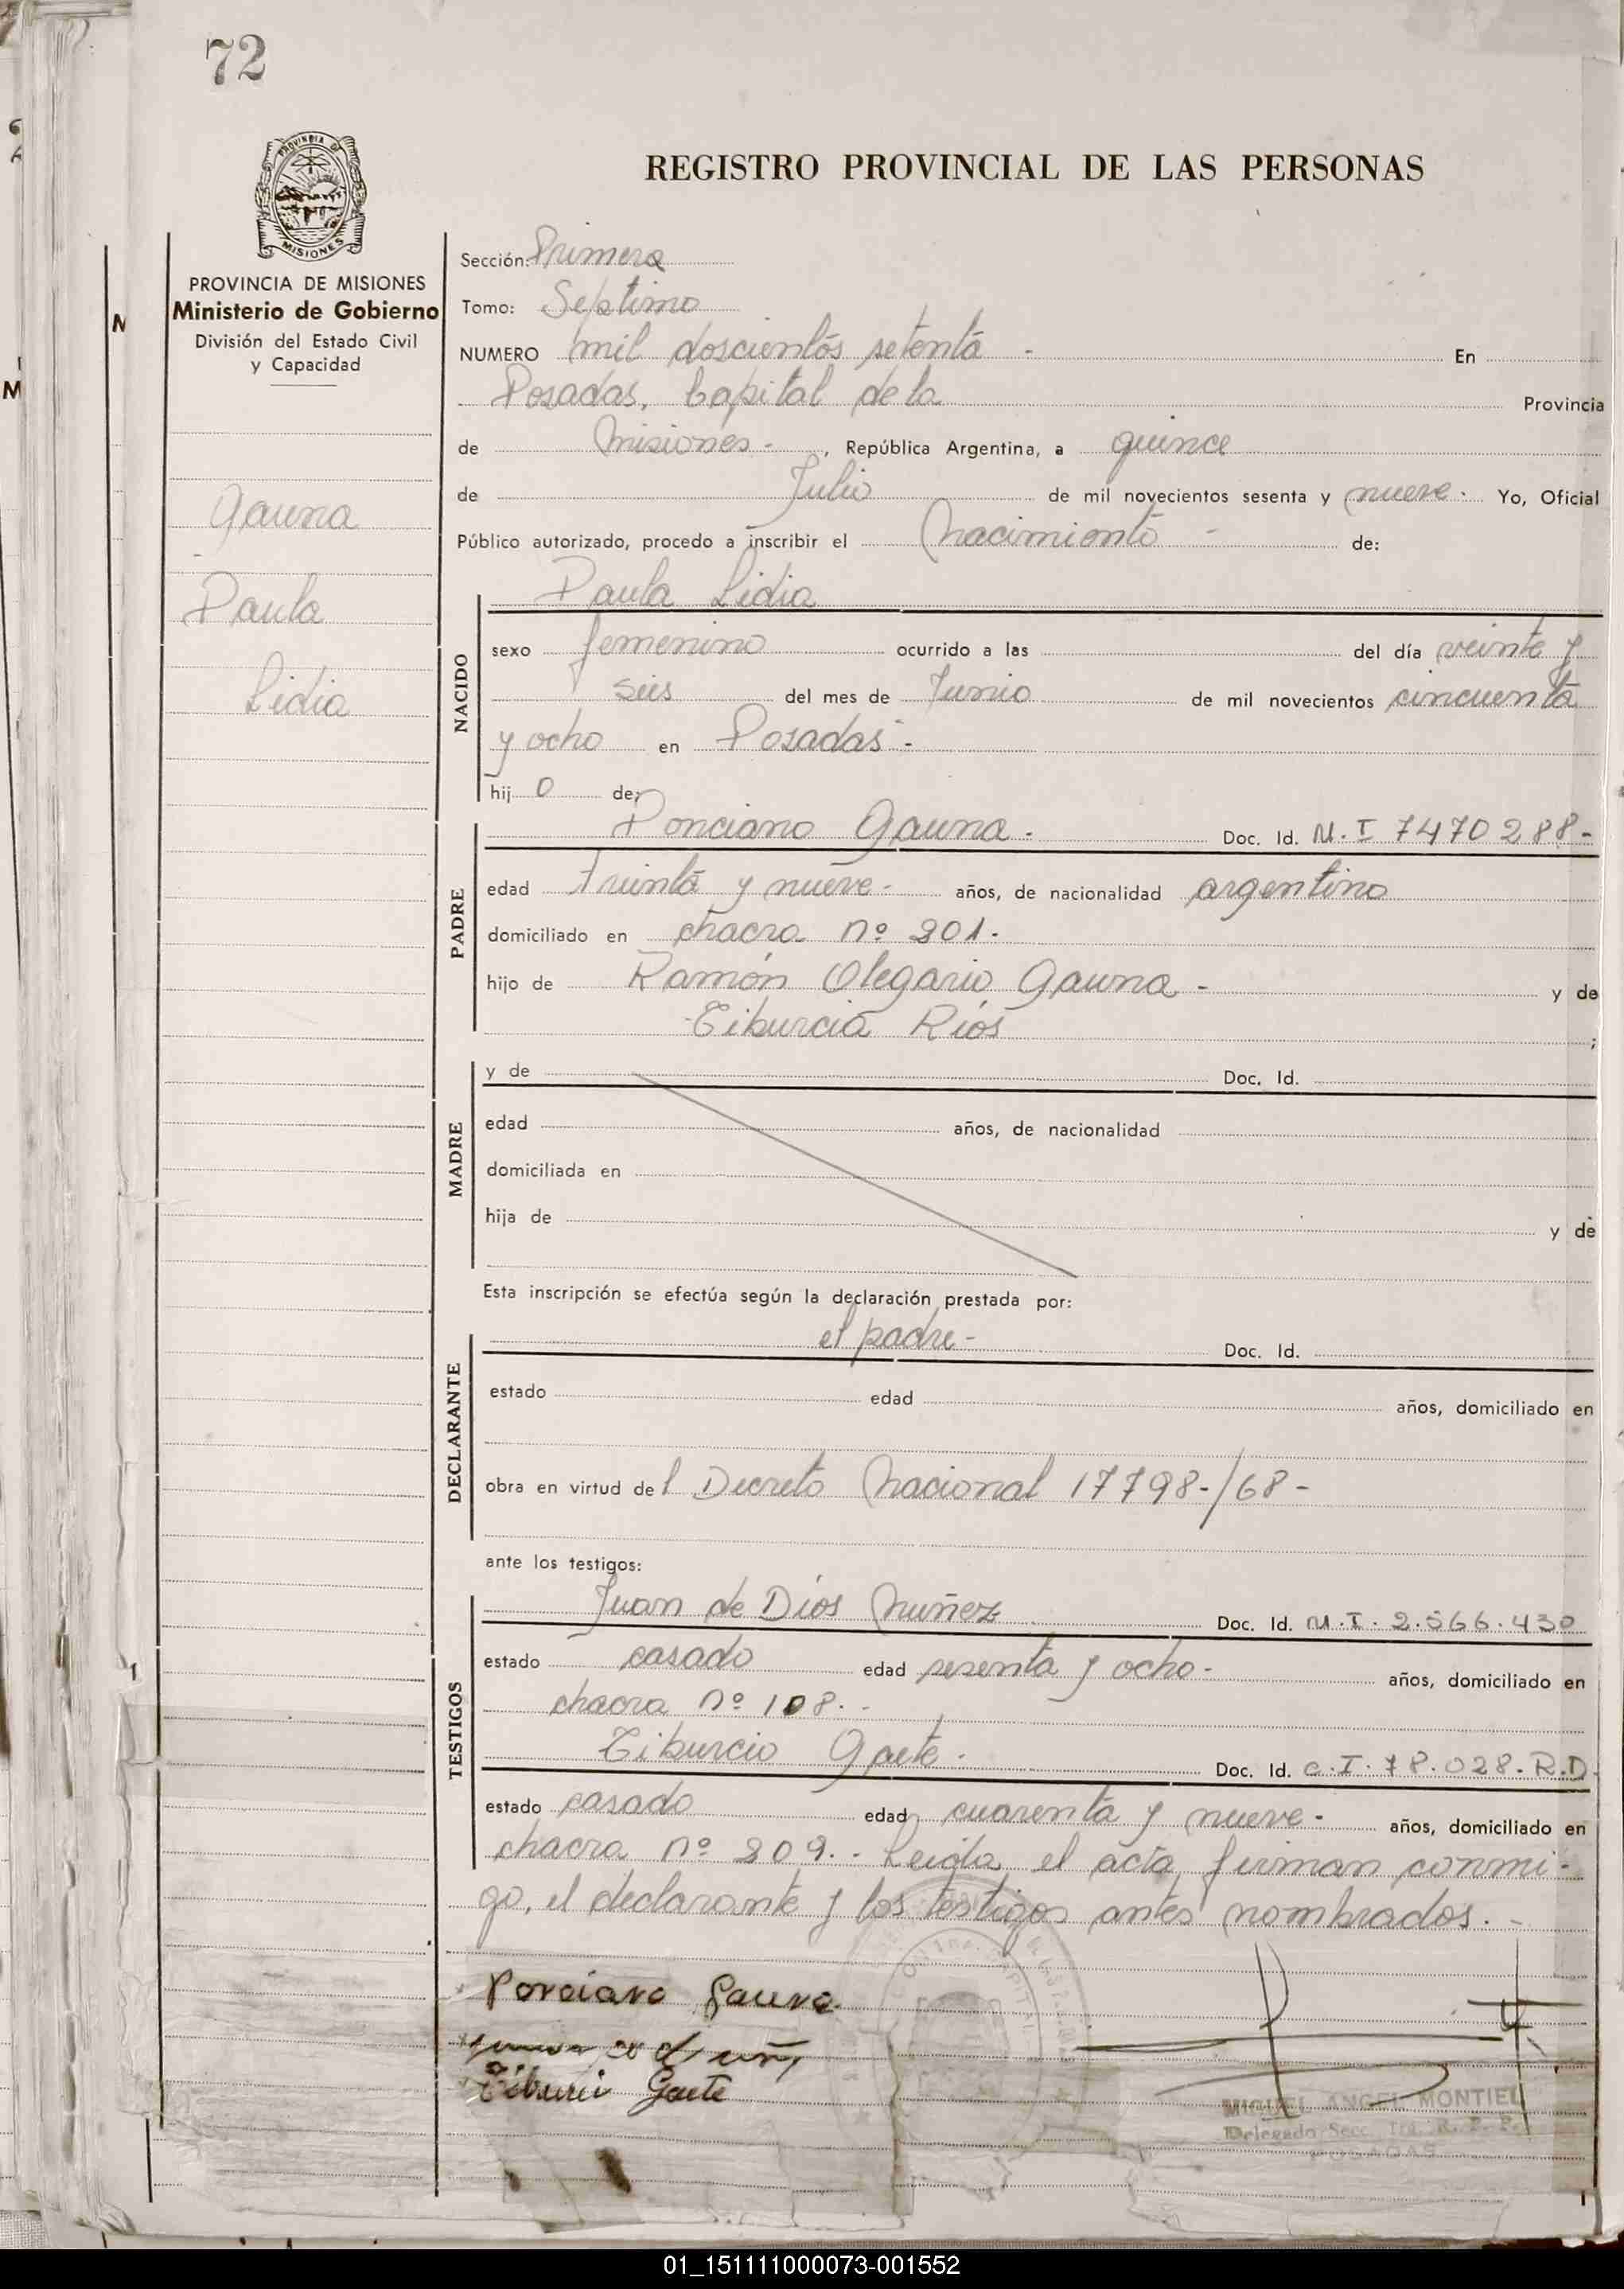 72
PROVINCIA DE
MISIONES
REGISTRO PROVINCIAL DE LAS PERSONAS
PROVINCIA DE MISIONES
Ministerio de Gobierno
División del Estado Civil
y Capacidad
Gauna
Paula
Lidia
Sección: Primera
Tomo: Septimo
NUMERO mil doscientos setenta - En
Posadas, Capital de la Provincia
de Misiones -, República Argentina, a quince
de Julio de mil novecientos sesenta y nueve. Yo, Oficial
Público autorizado, procedo a inscribir el Nacimiento - de:
NACIDO
Paula Lidia
sexo femenino ocurrido a las del día veinte y
seis del mes de Junio de mil novecientos cincuenta
y ocho en Posadas -
hij o de:
PADRE
Ponciano Gauna - Doc. Id. M. I 7470288-
edad Treinta y nueve - años, de nacionalidad argentino
domiciliado en chacra nº 201.
hijo de Ramón Olegario Gauna - y de
Tiburcia Ríos ;
MADRE
y de Doc. Id.
edad años, de nacionalidad
domiciliada en
hija de y de
Esta inscripción se efectúa según la declaración prestada por:
DECLARANTE
el padre - Doc. Id.
estado edad años, domiciliado en
obra en virtud de l Decreto Nacional 17798-/68-
ante los testigos:
TESTIGOS
Juan de Dios Nuñez Doc. Id. M.I. 2.566.430
estado casado edad sesenta y ocho - años, domiciliado en
chacra nº 108. -
Tiburcio Gaete. Doc. Id. C.I. 78.028. R.D.
estado casado edad cuarenta y nueve - años, domiciliado en
chacra nº 209. - Leída el acta, firman conmi-
go, el declarante y los testigos antes nombrados. -
Ponciano Gauna
Tiburci Gaete
MIGUEL ANGEL MONTIEL
Delegado Secc. 1ra. R. P. P.
POSADAS
01_151111000073-001552